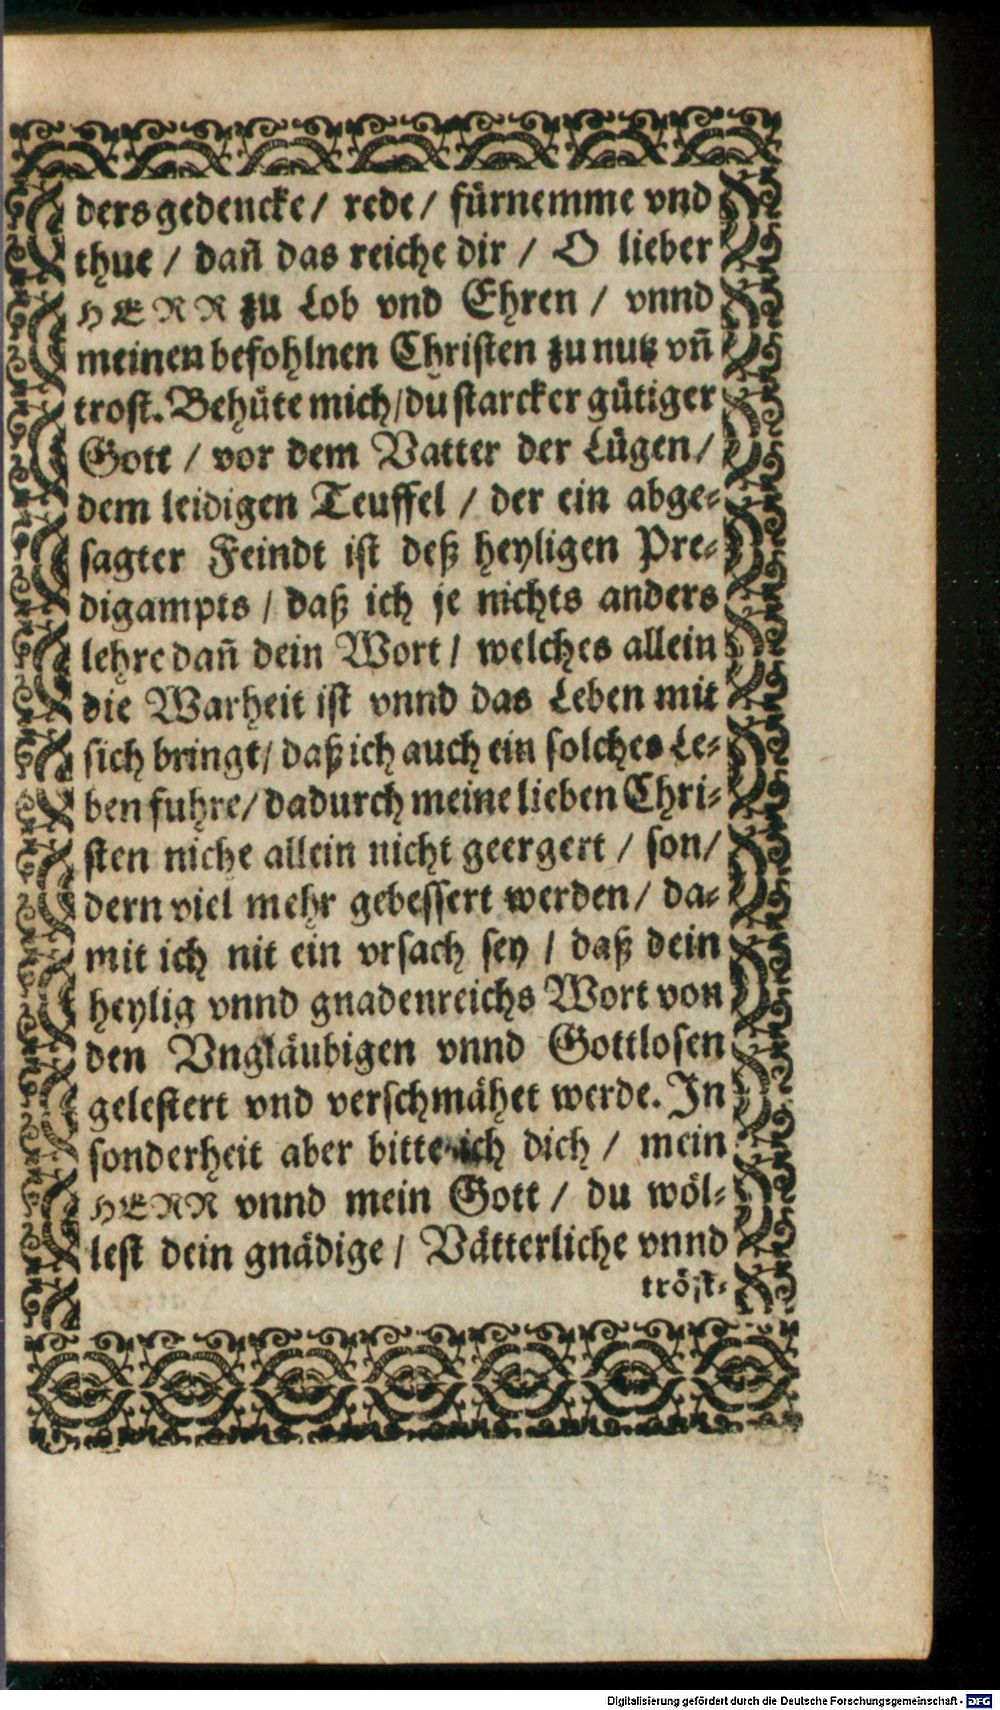 ders gedencke / rede / fürnemme vnd
thue / dañ das reiche dir / O lieber
HERR zu Lob vnd Ehren / vnnd
meinen befohlnen Christen zu nutz vñ
trost. Behüte mich / du starcker gütiger
Gott / vor dem Vatter der Lügen /
dem leidigen Teuffel / der ein abge-
sagter Feindt ist deß heyligen Pre-
digampts / daß ich je nichts anders
lehre dañ dein Wort / welches allein
die Warheit ist vnnd das Leben mit
sich bringt / daß ich auch ein solches Le-
ben fuhre / dadurch meine lieben Chri-
sten niche allein nicht geergert / son/
dern viel mehr gebessert werden / da-
mit ich nit ein vrsach sey / daß dein
heylig vnnd gnadenreichs Wort von
den Vngläubigen vnnd Gottlosen
gelestert vnd verschmähet werde. In
sonderheit aber bitte ich dich / mein
HERR vnnd mein Gott / du wöl-
lest dein gnädige / Vätterliche vnnd
tröst-
Digitalisierung gefördert durch die Deutsche Forschungsgemeinschaft - DFG